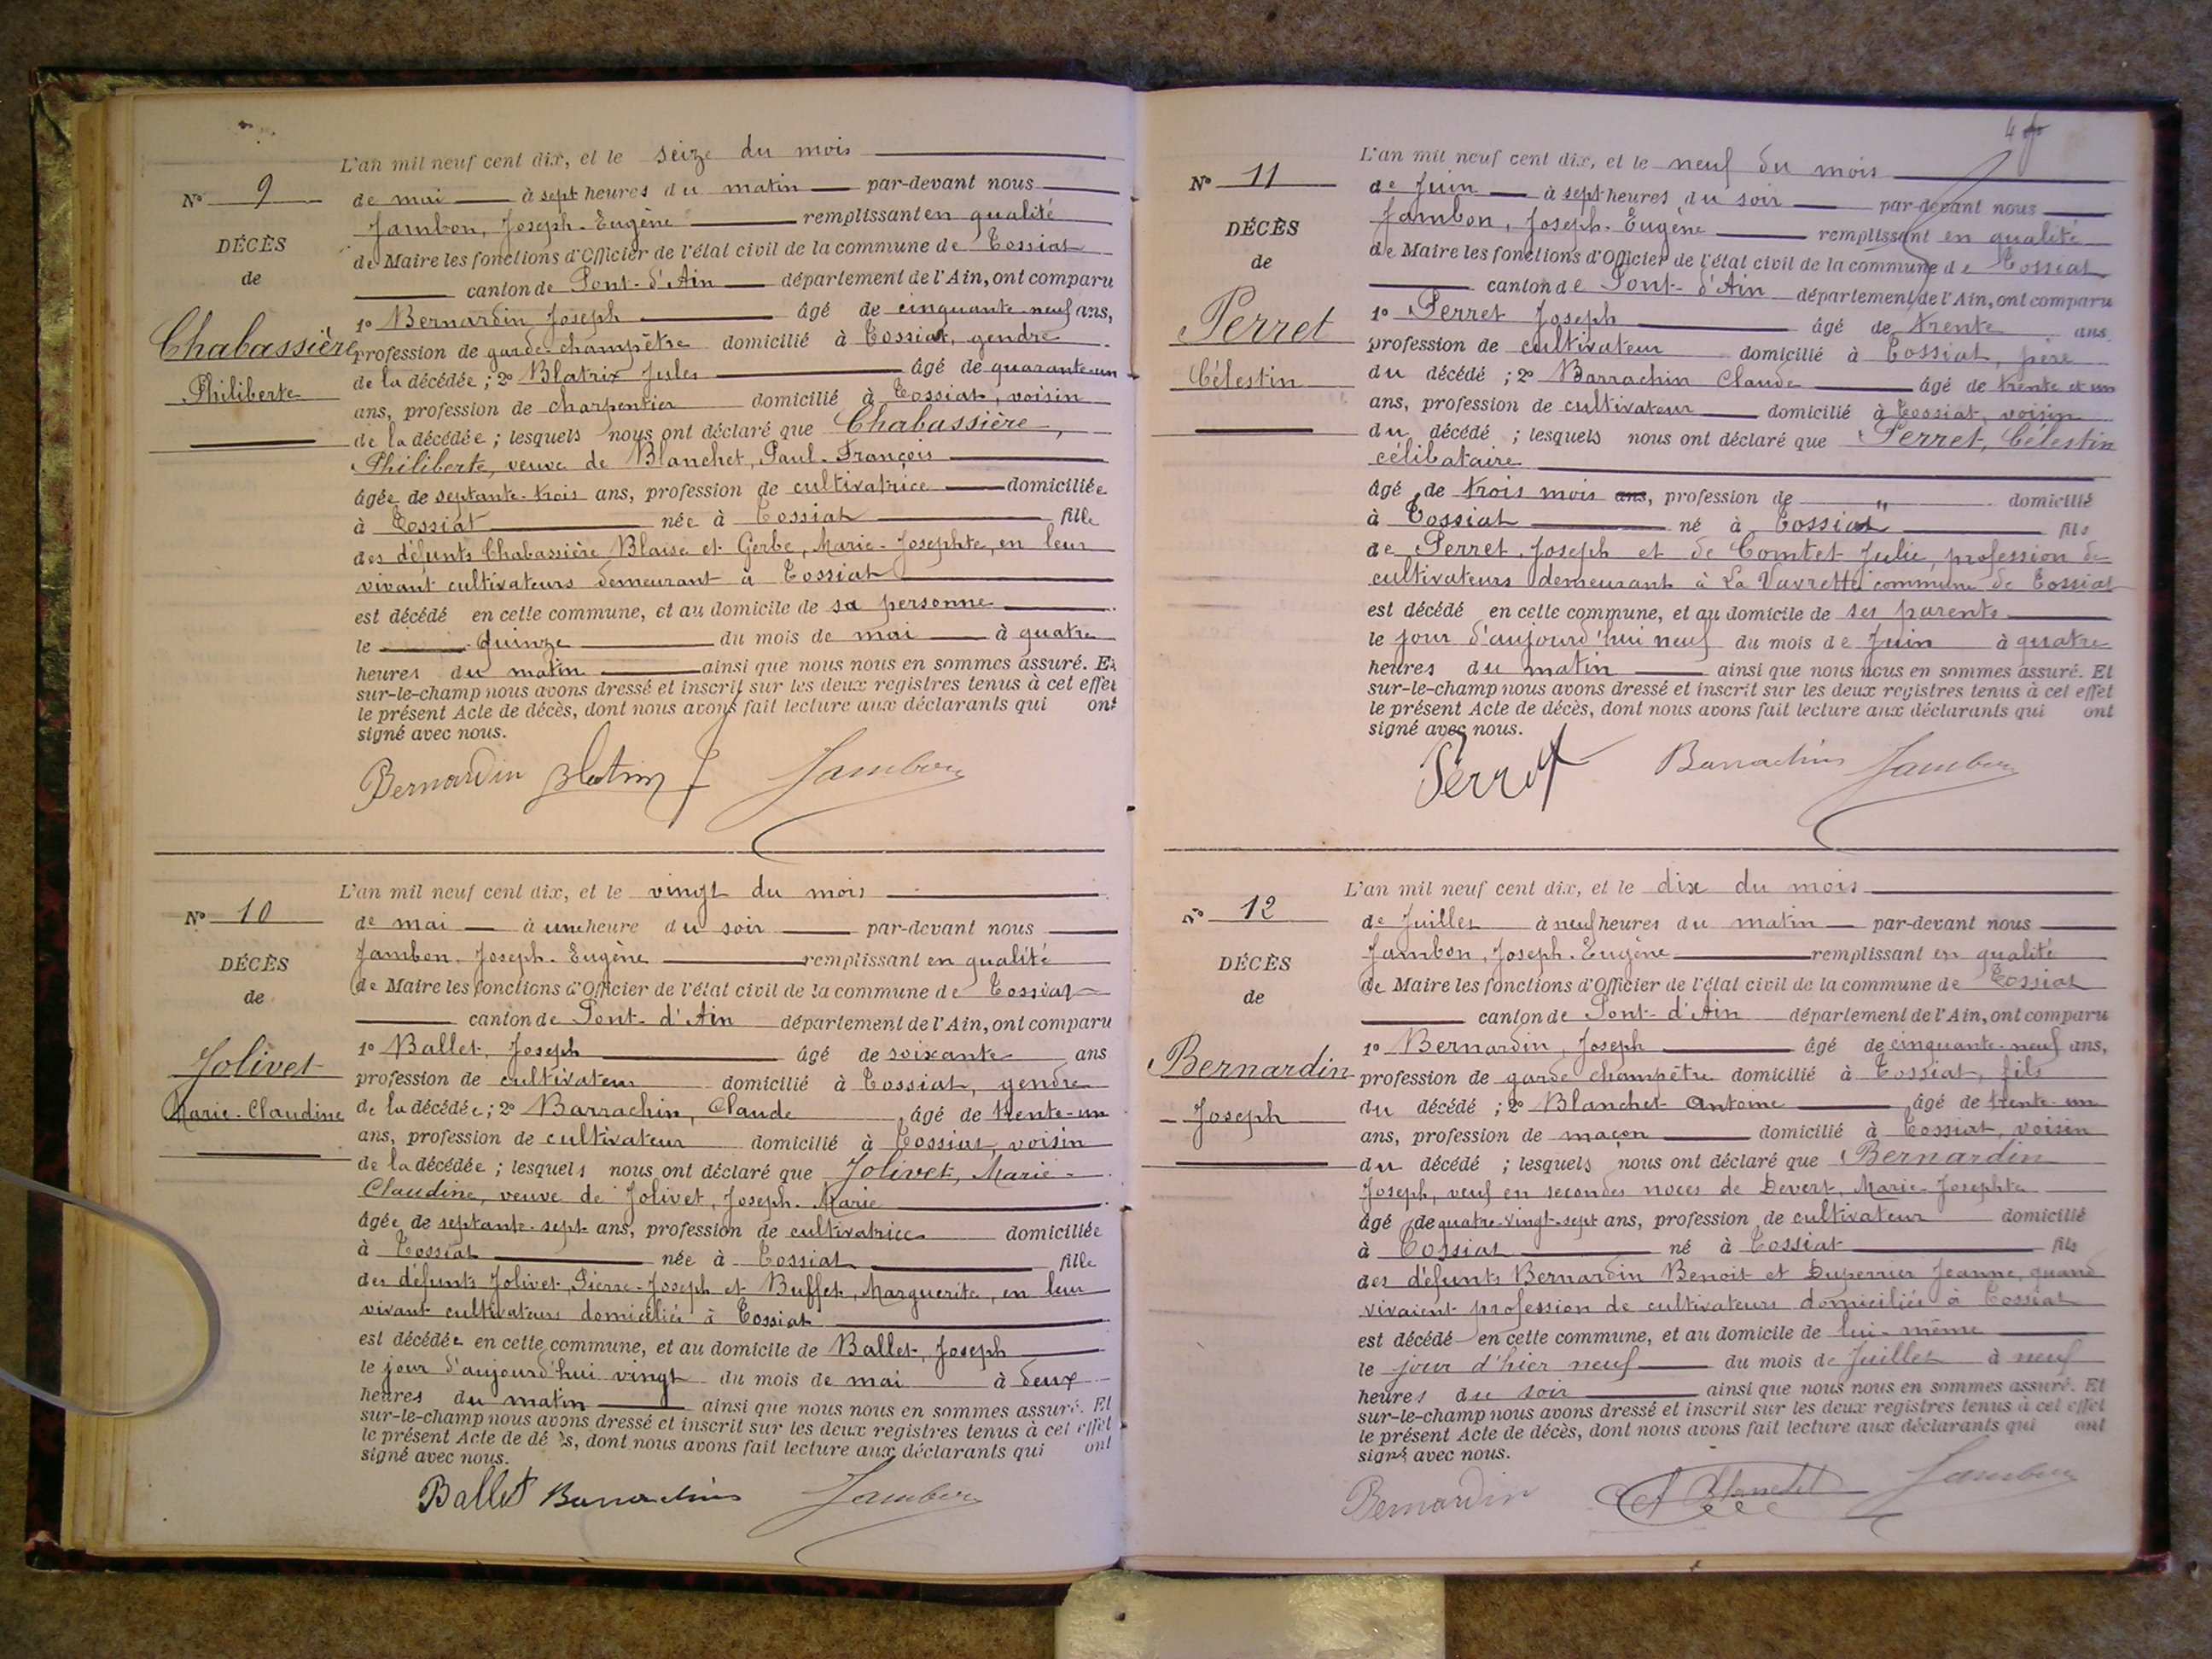 L'an mil neuf cent dix, et le seize du mois
N° 9
de mai à sept heures du matin par-devant nous
Jambon, Joseph-Eugène remplissant en qualité
DÉCÈS
de Maire les fonctions d'Officier de l'état civil de la commune de Tossiat
de
canton de Pont-d'Ain département de l'Ain, ont comparu
1° Bernardin Joseph âgé de cinquante-neuf ans,
Chabassière
profession de garde-champêtre domicilié à Tossiat, gendre
de la décédée ; 2° Blatrix Jules âgé de quarante-un
Philiberte
ans, profession de charpentier domicilié à Tossiat, voisin
de la décédée ; lesquels nous ont déclaré que Chabassière,
Philiberte, veuve de Blanchet, Paul-François
âgée de septante-trois ans, profession de cultivatrice domiciliée
à Tossiat née à Tossiat fille
des défunts Chabassière Blaise et Gerbe, Marie-Josephte, en leur
vivant cultivateurs demeurant à Tossiat
est décédé en cette commune, et au domicile de sa personne
le quinze du mois de mai à quatre
heures du matin ainsi que nous nous en sommes assuré. Et
sur-le-champ nous avons dressé et inscrit sur les deux registres tenus à cet effet
le présent Acte de décès, dont nous avons fait lecture aux déclarants qui ont
signé avec nous.
Bernardin Blatrix J Jambon
L'an mil neuf cent dix, et le vingt du mois
N° 10
de mai à une heure du soir par-devant nous
Jambon, Joseph-Eugène remplissant en qualité
DÉCÈS
de Maire les fonctions d'Officier de l'état civil de la commune de Tossiat
de
canton de Pont-d'Ain département de l'Ain, ont comparu
1° Ballet, Joseph âgé de soixante ans
Jolivet
profession de cultivateur domicilié à Tossiat, gendre
Marie-Claudine
de la décédée ; 2° Barrachin, Claude âgé de trente-un
ans, profession de cultivateur domicilié à Tossiat, voisin
de la décédée ; lesquels nous ont déclaré que Jolivet, Marie-
Claudine, veuve de Jolivet, Joseph-Marie
âgée de septante-sept ans, profession de cultivatrice domiciliée
à Tossiat née à Tossiat fille
des défunts Jolivet, Pierre-Joseph et Buffet, Marguerite, en leur
vivant cultivateurs domiciliés à Tossiat
est décédée en cette commune, et au domicile de Ballet, Joseph
le jour d'aujourd'hui vingt du mois de mai à deux
heures du matin ainsi que nous nous en sommes assuré. Et
sur-le-champ nous avons dressé et inscrit sur les deux registres tenus à cet effet
le présent Acte de décès, dont nous avons fait lecture aux déclarants qui ont
signé avec nous.
Ballet Barrachin Jambon
L'an mil neuf cent dix, et le neuf du mois
N° 11
de Juin à sept heures du soir par-devant nous
Jambon, Joseph-Eugène remplissant en qualité
DÉCÈS
de Maire les fonctions d'Officier de l'état civil de la commune de Tossiat
de
canton de Pont-d'Ain département de l'Ain, ont comparu
1° Perret Joseph âgé de trente ans
Perret
profession de cultivateur domicilié à Tossiat, père
Célestin
du décédé ; 2° Barrachin Claude âgé de trente et un
ans, profession de cultivateur domicilié à Tossiat, voisin
du décédé ; lesquels nous ont déclaré que Perret, Célestin
célibataire
âgé de trois mois ans, profession de " domicilié
à Tossiat né à Tossiat fils
de Perret Joseph et de Comtet Julie, profession de
cultivateurs demeurant à La Vavrette commune de Tossiat
est décédé en cette commune, et au domicile de ses parents
le jour d'aujourd'hui neuf du mois de Juin à quatre
heures du matin ainsi que nous nous en sommes assuré. Et
sur-le-champ nous avons dressé et inscrit sur les deux registres tenus à cet effet
le présent Acte de décès, dont nous avons fait lecture aux déclarants qui ont
signé avec nous.
Perret Barrachin Jambon
L'an mil neuf cent dix, et le dix du mois
N° 12
de Juillet à neuf heures du matin par-devant nous
Jambon, Joseph-Eugène remplissant en qualité
DÉCÈS
de Maire les fonctions d'Officier de l'état civil de la commune de Tossiat
de
canton de Pont-d'Ain département de l'Ain, ont comparu
1° Bernardin, Joseph âgé de cinquante-neuf ans,
Bernardin
profession de garde champêtre domicilié à Tossiat, fils
Joseph
du décédé ; 2° Blanchet Antoine âgé de trente-un
ans, profession de maçon domicilié à Tossiat, voisin
du décédé ; lesquels nous ont déclaré que Bernardin
Joseph, veuf en secondes noces de Devert, Marie-Josephte
âgé de quatre-vingt-sept ans, profession de cultivateur domicilié
à Tossiat né à Tossiat fils
des défunts Bernardin Benoit et Duperrier Jeanne, quand
vivaient profession de cultivateurs domiciliés à Tossiat
est décédé en cette commune, et au domicile de lui-même
le jour d'hier neuf du mois de Juillet à neuf
heures du soir ainsi que nous nous en sommes assuré. Et
sur-le-champ nous avons dressé et inscrit sur les deux registres tenus à cet effet
le présent Acte de décès, dont nous avons fait lecture aux déclarants qui ont
signé avec nous.
Bernardin A Blanchet Jambon